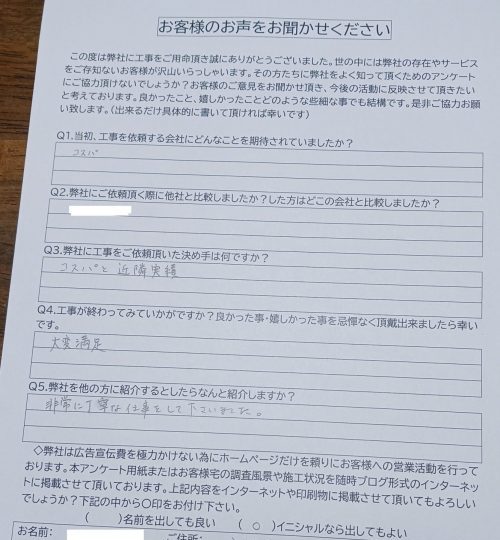 お客様のお声をお聞かせください
この度は弊社に工事をご用命頂き誠にありがとうございました。世の中には弊社の存在やサービス
をご存知ないお客様が沢山いらっしゃいます。その方たちに弊社をよく知って頂くためのアンケート
にご協力頂けないでしょうか?お客様のご意見をお聞かせ頂き、今後の活動に反映させて頂きたい
と考えております。良かったこと、嬉しかったことどのような些細な事でも結構です。是非ご協力お願
い致します。(出来るだけ具体的に書いて頂ければ幸いです)
Q1.当初、工事を依頼する会社にどんなことを期待されていましたか?
コスパ
Q2.弊社にご依頼頂く際に他社と比較しましたか?した方はどこの会社と比較しましたか?
Q3.弊社に工事をご依頼頂いた決め手は何ですか?
コスパと近隣実績
Q4.工事が終わってみていかがですか?良かった事・嬉しかった事を忌憚なく頂戴出来ましたら幸い
です。
大変満足
Q5.弊社を他の方に紹介するとしたらなんと紹介しますか?
非常に丁寧な仕事をして下さいました。
◇弊社は広告宣伝費を極力かけない為にホームページだけを頼りにお客様への営業活動を行って
おります。本アンケート用紙またはお客様宅の調査風景や施工状況を随時ブログ形式のインターネッ
トに掲載させて頂いております。上記内容をインターネットや印刷物に掲載させて頂いてもよろしい
でしょうか?下記の中から〇印をお付け下さい。
( )名前を出しても良い ( ○ )イニシャルなら出してもよい
お名前: ご住所: